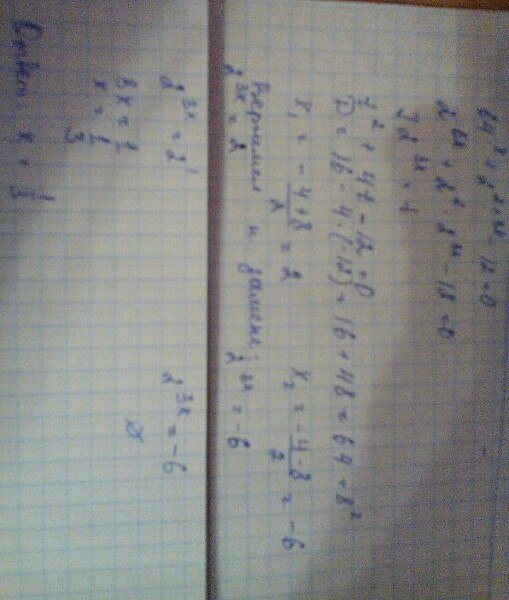 64^x + 2^{2+3x} - 12 = 0
2^{6x} + 2^2 · 2^{3x} - 12 = 0
] 2^{3x} = t
t^2 + 4t - 12 = 0
D = 16 - 4·(-12) = 16 + 48 = 64 = 8^2
x_1 = \frac{-4+8}{2} = 2 x_2 = \frac{-4-8}{2} = -6
Вернемся к замене:
2^{3x} = 2 2^{3x} = -6
2^{3x} = 2^1 2^{3x} = -6
3x = 1 ∅
x = \frac{1}{3}
Ответ: x = \frac{1}{3}